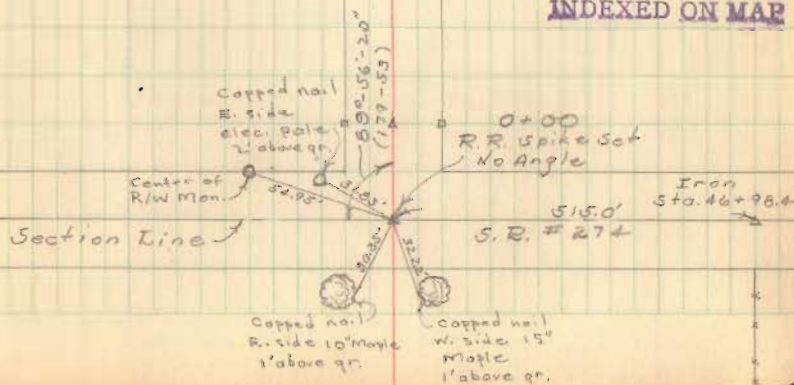 INDEXED ON MAP
88°-56'-20"
(177-53)
Capped nail
E. side
elec. pole
2' above gr.
0+00
R.R. Spike Set
No Angle
Center of
R/W Mon.
54.95'
31.85'
Iron
Sta. 46+98.4
515.0'
S.R. #274
Section Line
30.35'
32.22'
Capped nail
E. side 10" Maple
1' above gr.
Capped nail
W. side 15"
Maple
1' above gr.